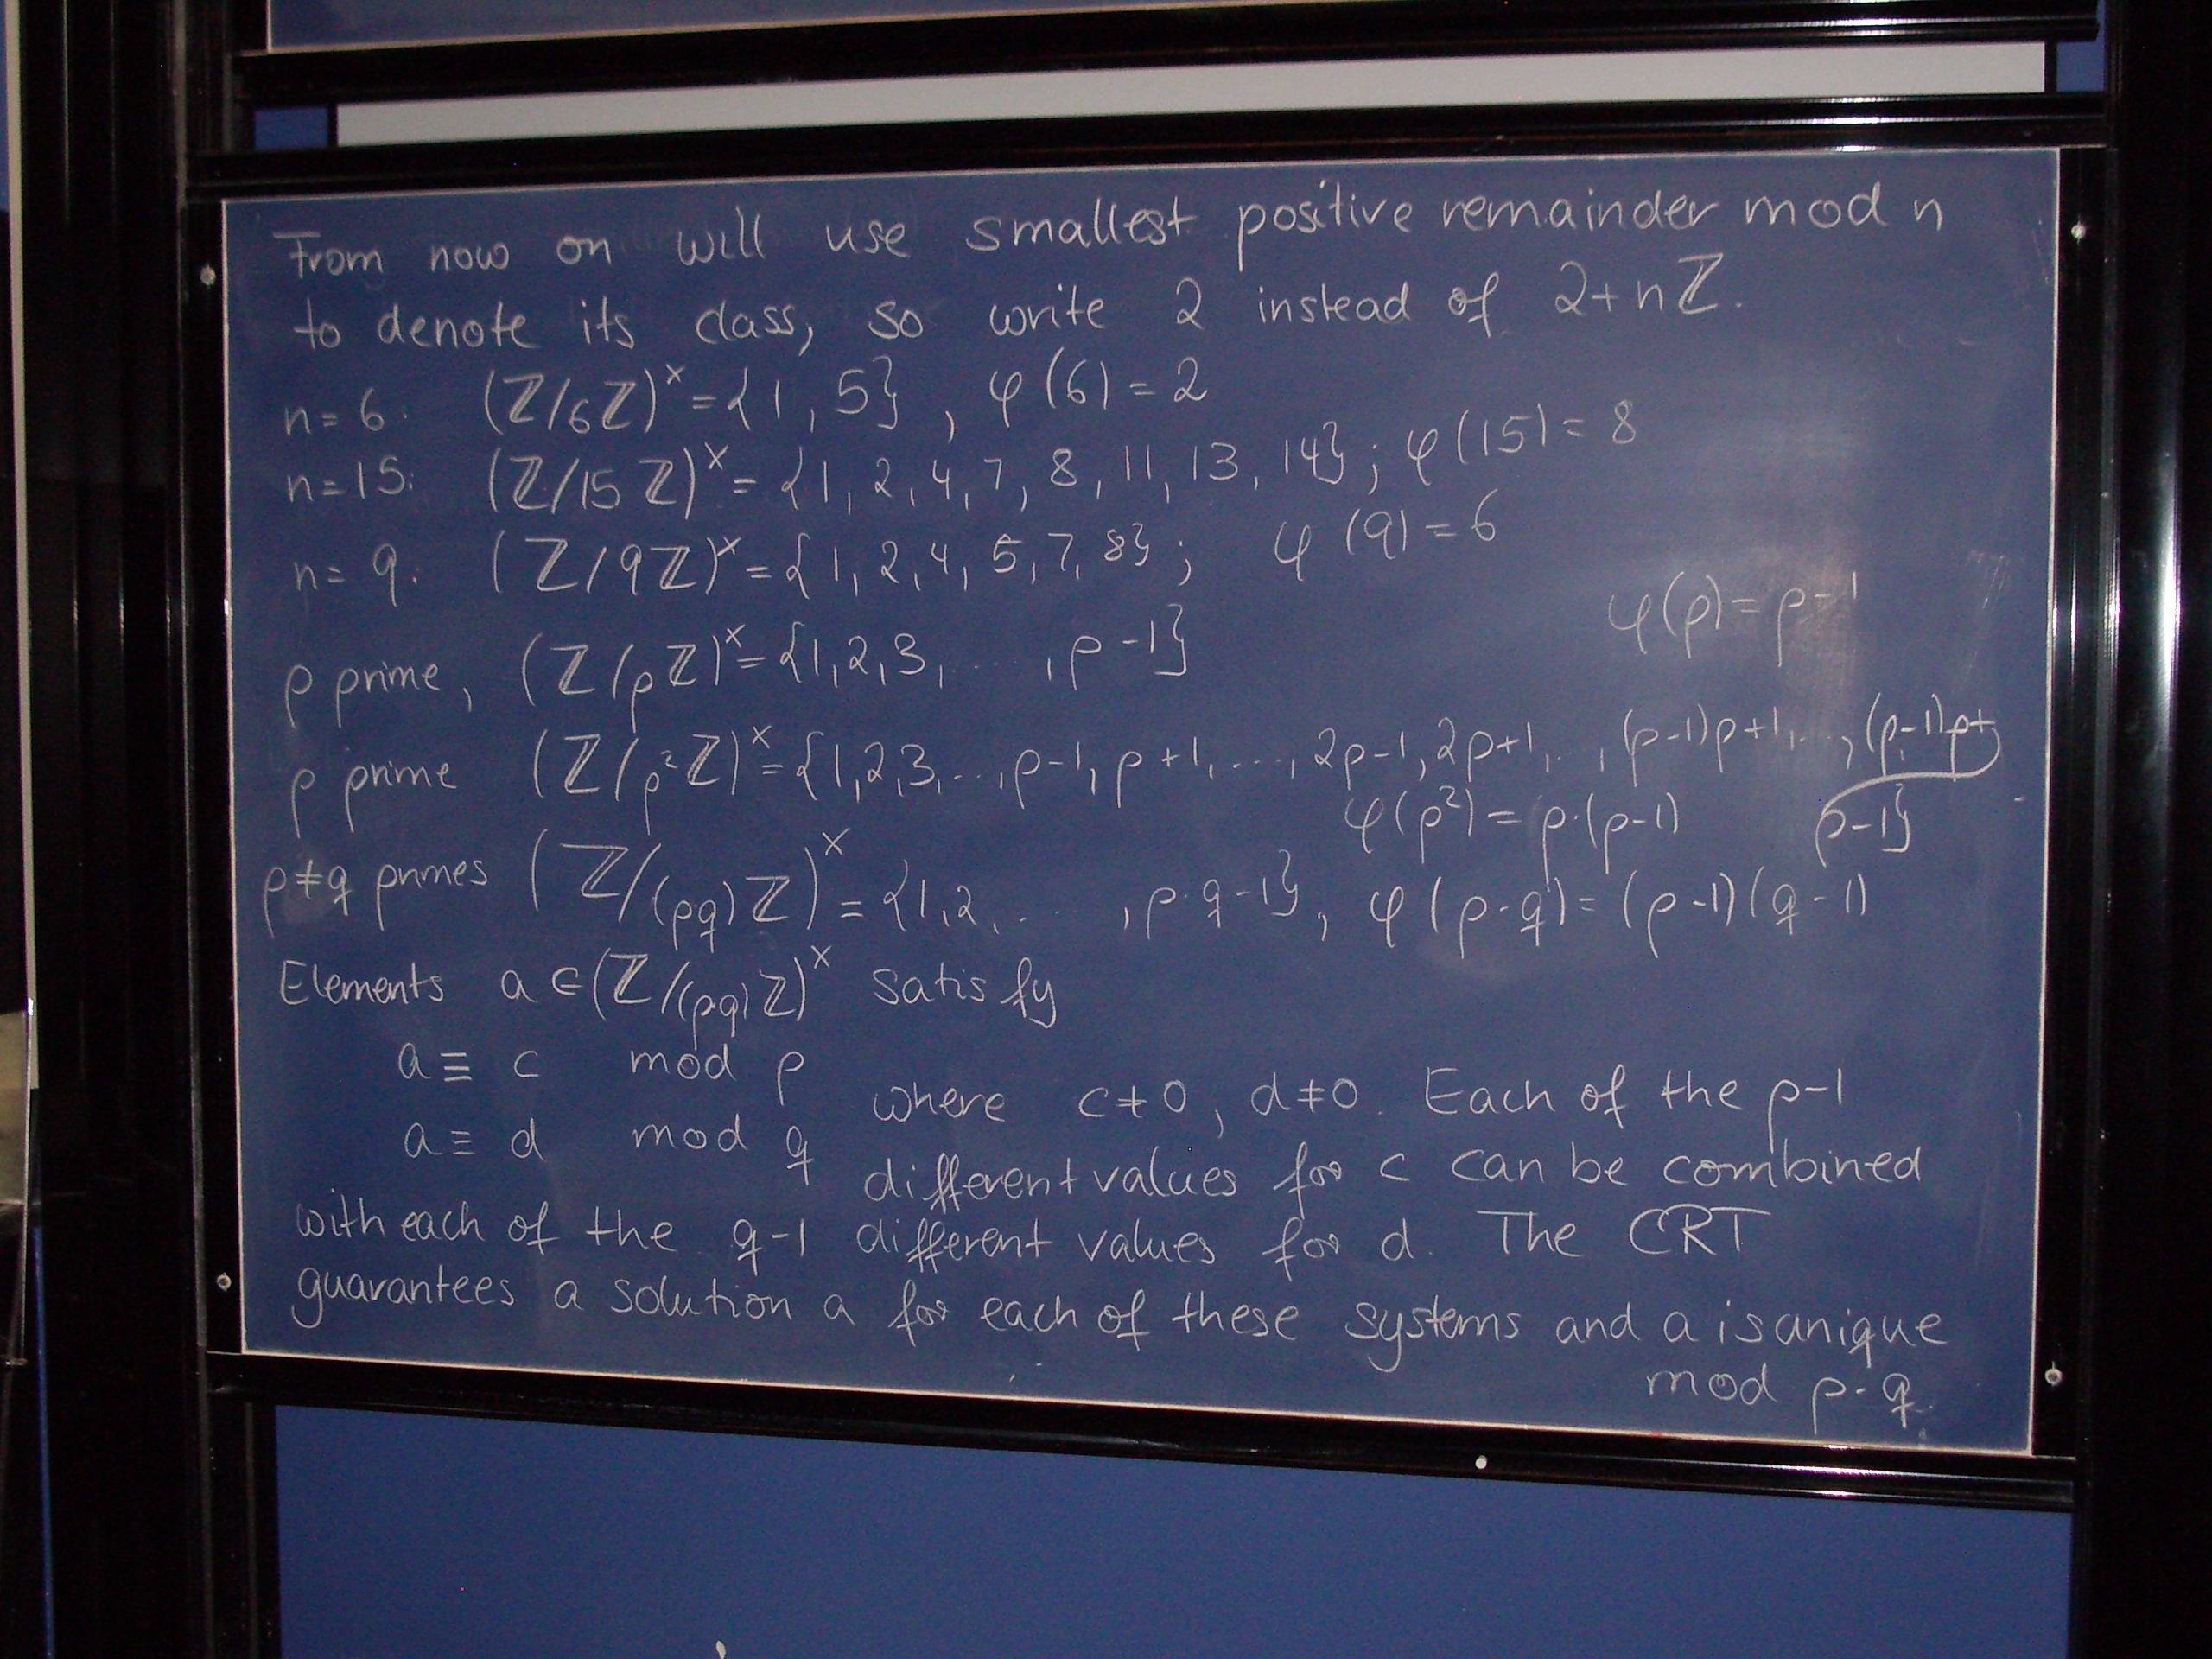 From now on will use smallest positive remainder mod n
to denote its class, so write 2 instead of 2+nℤ.
n=6: (ℤ/6ℤ)^× = {1, 5}, φ(6) = 2
n=15: (ℤ/15ℤ)^× = {1, 2, 4, 7, 8, 11, 13, 14}; φ(15) = 8
n=9: (ℤ/9ℤ)^× = {1, 2, 4, 5, 7, 8}; φ(9) = 6
p prime, (ℤ/pℤ)^× = {1, 2, 3, ..., p-1} φ(p) = p-1
p prime (ℤ/p²ℤ)^× = {1, 2, 3, ..., p-1, p+1, ..., 2p-1, 2p+1, ..., (p-1)p+1, ..., (p-1)p+
φ(p²) = p·(p-1) p-1}
p≠q primes (ℤ/(pq)ℤ)^× = {1, 2, ..., p·q-1}, φ(p·q) = (p-1)(q-1)
Elements a ∈ (ℤ/(pq)ℤ)^× satisfy
a ≡ c mod p
where c≠0, d≠0. Each of the p-1
a ≡ d mod q
different values for c can be combined
with each of the q-1 different values for d. The CRT
guarantees a solution a for each of these systems and a is anique
mod p·q.